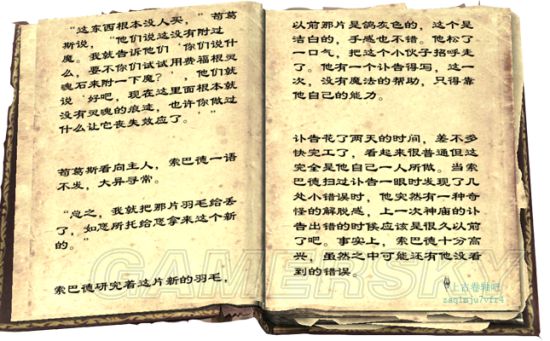 “这东西根本没人买，”苟葛
斯说，“他们说这没有附过
魔。我就告诉他们‘你们说什
么，要不你们试试用费福根灵
魂石来附一下魔？’，他们就
说‘好吧，现在这里面根本就
没有灵魂的痕迹，也许你做过
什么让它丧失效应了。’”
苟葛斯看向主人，索巴德一语
不发，大异寻常。
“总之，我就把那片羽毛给丢
了，如您所托给您拿来这个新
的。”
索巴德研究着这片新的羽毛，
以前那片是鸽灰色的，这个是
洁白的，手感也不错。他松了
一口气，把这个小伙子招呼走
了。他有一个讣告得写，这一
次，没有魔法的帮助，只得靠
他自己的能力。
讣告花了两天的时间，差不多
快完工了，看起来很普通但这
完全是他自己一人所做。当索
巴德扫过讣告一眼时发现了几
处小错误时，他突然有一种奇
怪的解脱感，上一次神庙的讣
告出错的时候应该是很久以前
了吧。事实上，索巴德十分高
兴，虽然之中可能还有他没看
到的错误。
GAMERSKY
上古卷轴吧
zaq1mju7vfr4